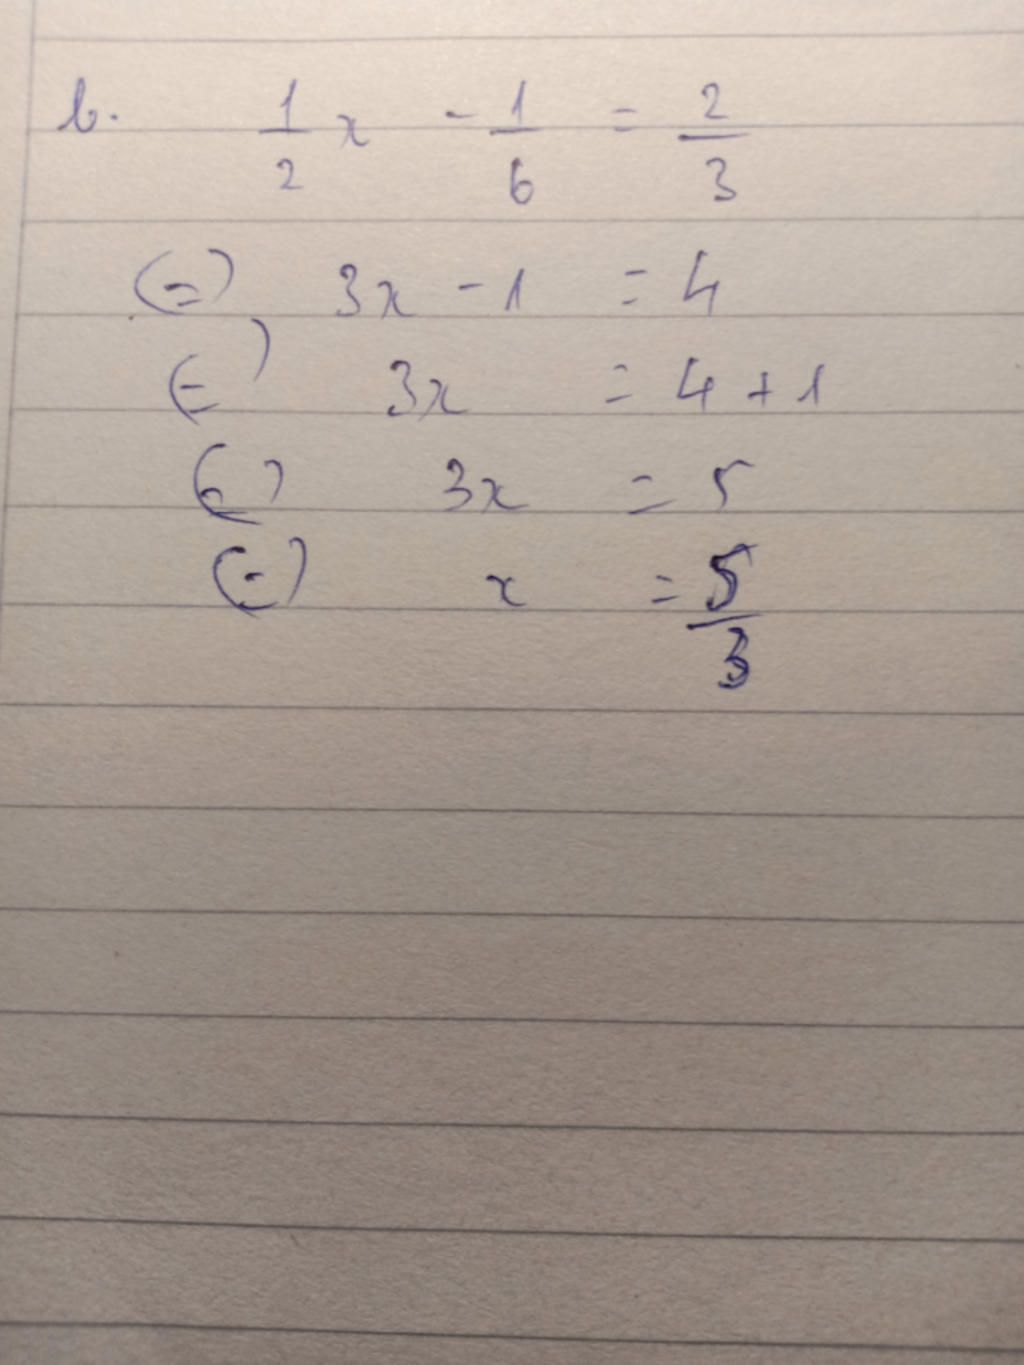 b. 1/2 x - 1/6 = 2/3
(=) 3x - 1 = 4
(=) 3x = 4 + 1
(=) 3x = 5
(=) x = 5/3